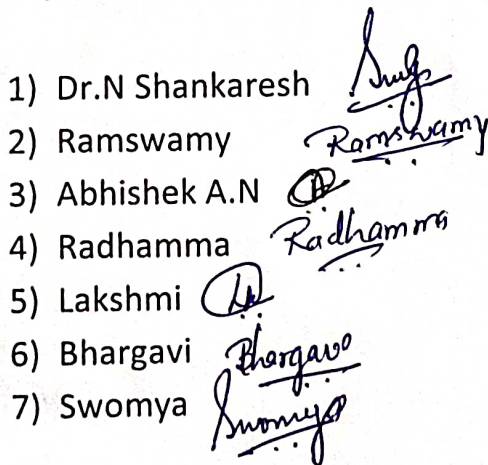 1) Dr.N Shankaresh
2) Ramswamy Ramswamy
3) Abhishek A.N A
4) Radhamma Radhamma
5) Lakshmi
6) Bhargavi Bhargavi
7) Swomya Swomya